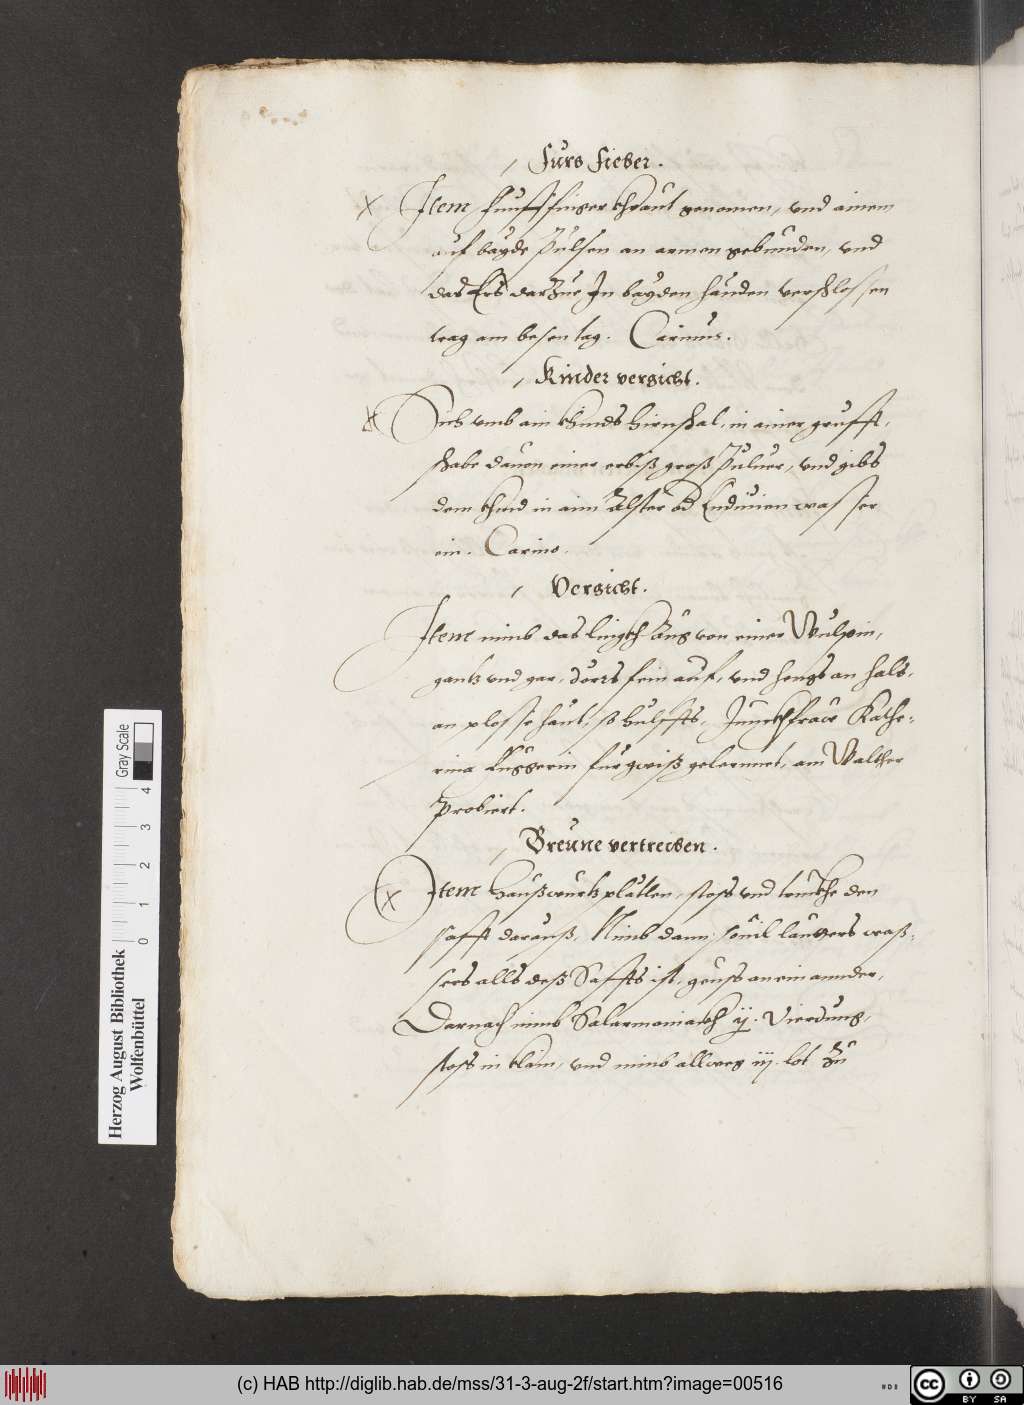 / Furs Fieber.
Item Funfffinger khraut genomen, und ainem
auf bayde Pulsen an armen gebunden, und
das Ers darzue In bayden handen verschlossen
trag am besen tag. Carinus.
/ Kinder vergicht.
Sich umb ain khinds hirnschal, in ainer grufft,
schabe davon einer erbiß groß Puluer, und gibs
dem khind in aim Alster od Endiuien wasser
ein. Carino.
/ Vergicht.
Item nimb das lingkh Aug von einer Wulpin,
gantz und gar, dörrs fein auf, und hengs an hals,
an plosse haut, so hulffts, Junckhfraw Kathe-
rina fur gwiß gelernnet, am Walther
Probiert.
/ Breune vertreiben.
Item haußwurtz pletter, stoss und truckhe den
safft darauß, Nimb dann souil lauters waß-
sers alls deß Saffts ist, geuss an ein annder,
Darnach nimb Salarmoniackh ij. Vierdung,
stoss in klain, und nimb allweg iij. lot zu
Herzog August Bibliothek
Wolfenbüttel
0 1 2 3 4
Gray Scale
(c) HAB http://diglib.hab.de/mss/31-3-aug-2f/start.htm?image=00516
cc BY SA